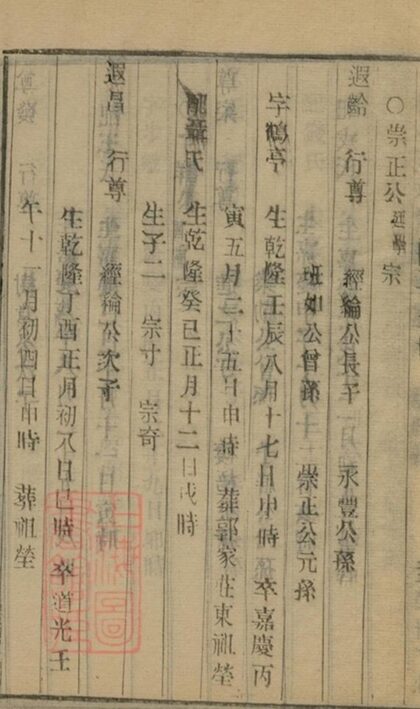 ○崇正公 宗
遐齡 行尊 經綸公長子 永豐公孫
班如公曾孫 崇正公元孫
字鶴亭 生乾隆壬辰八月十七日申時 卒嘉慶丙
寅五月二十五日申時 葬郭家庄東祖塋
配聶氏 生乾隆癸巳正月十二日戌時
生子二 宗寸 宗奇
遐昌 行尊 經綸公次子
生乾隆丁酉正月初八日巳時 卒道光壬
午十一月初四日申時 葬祖塋